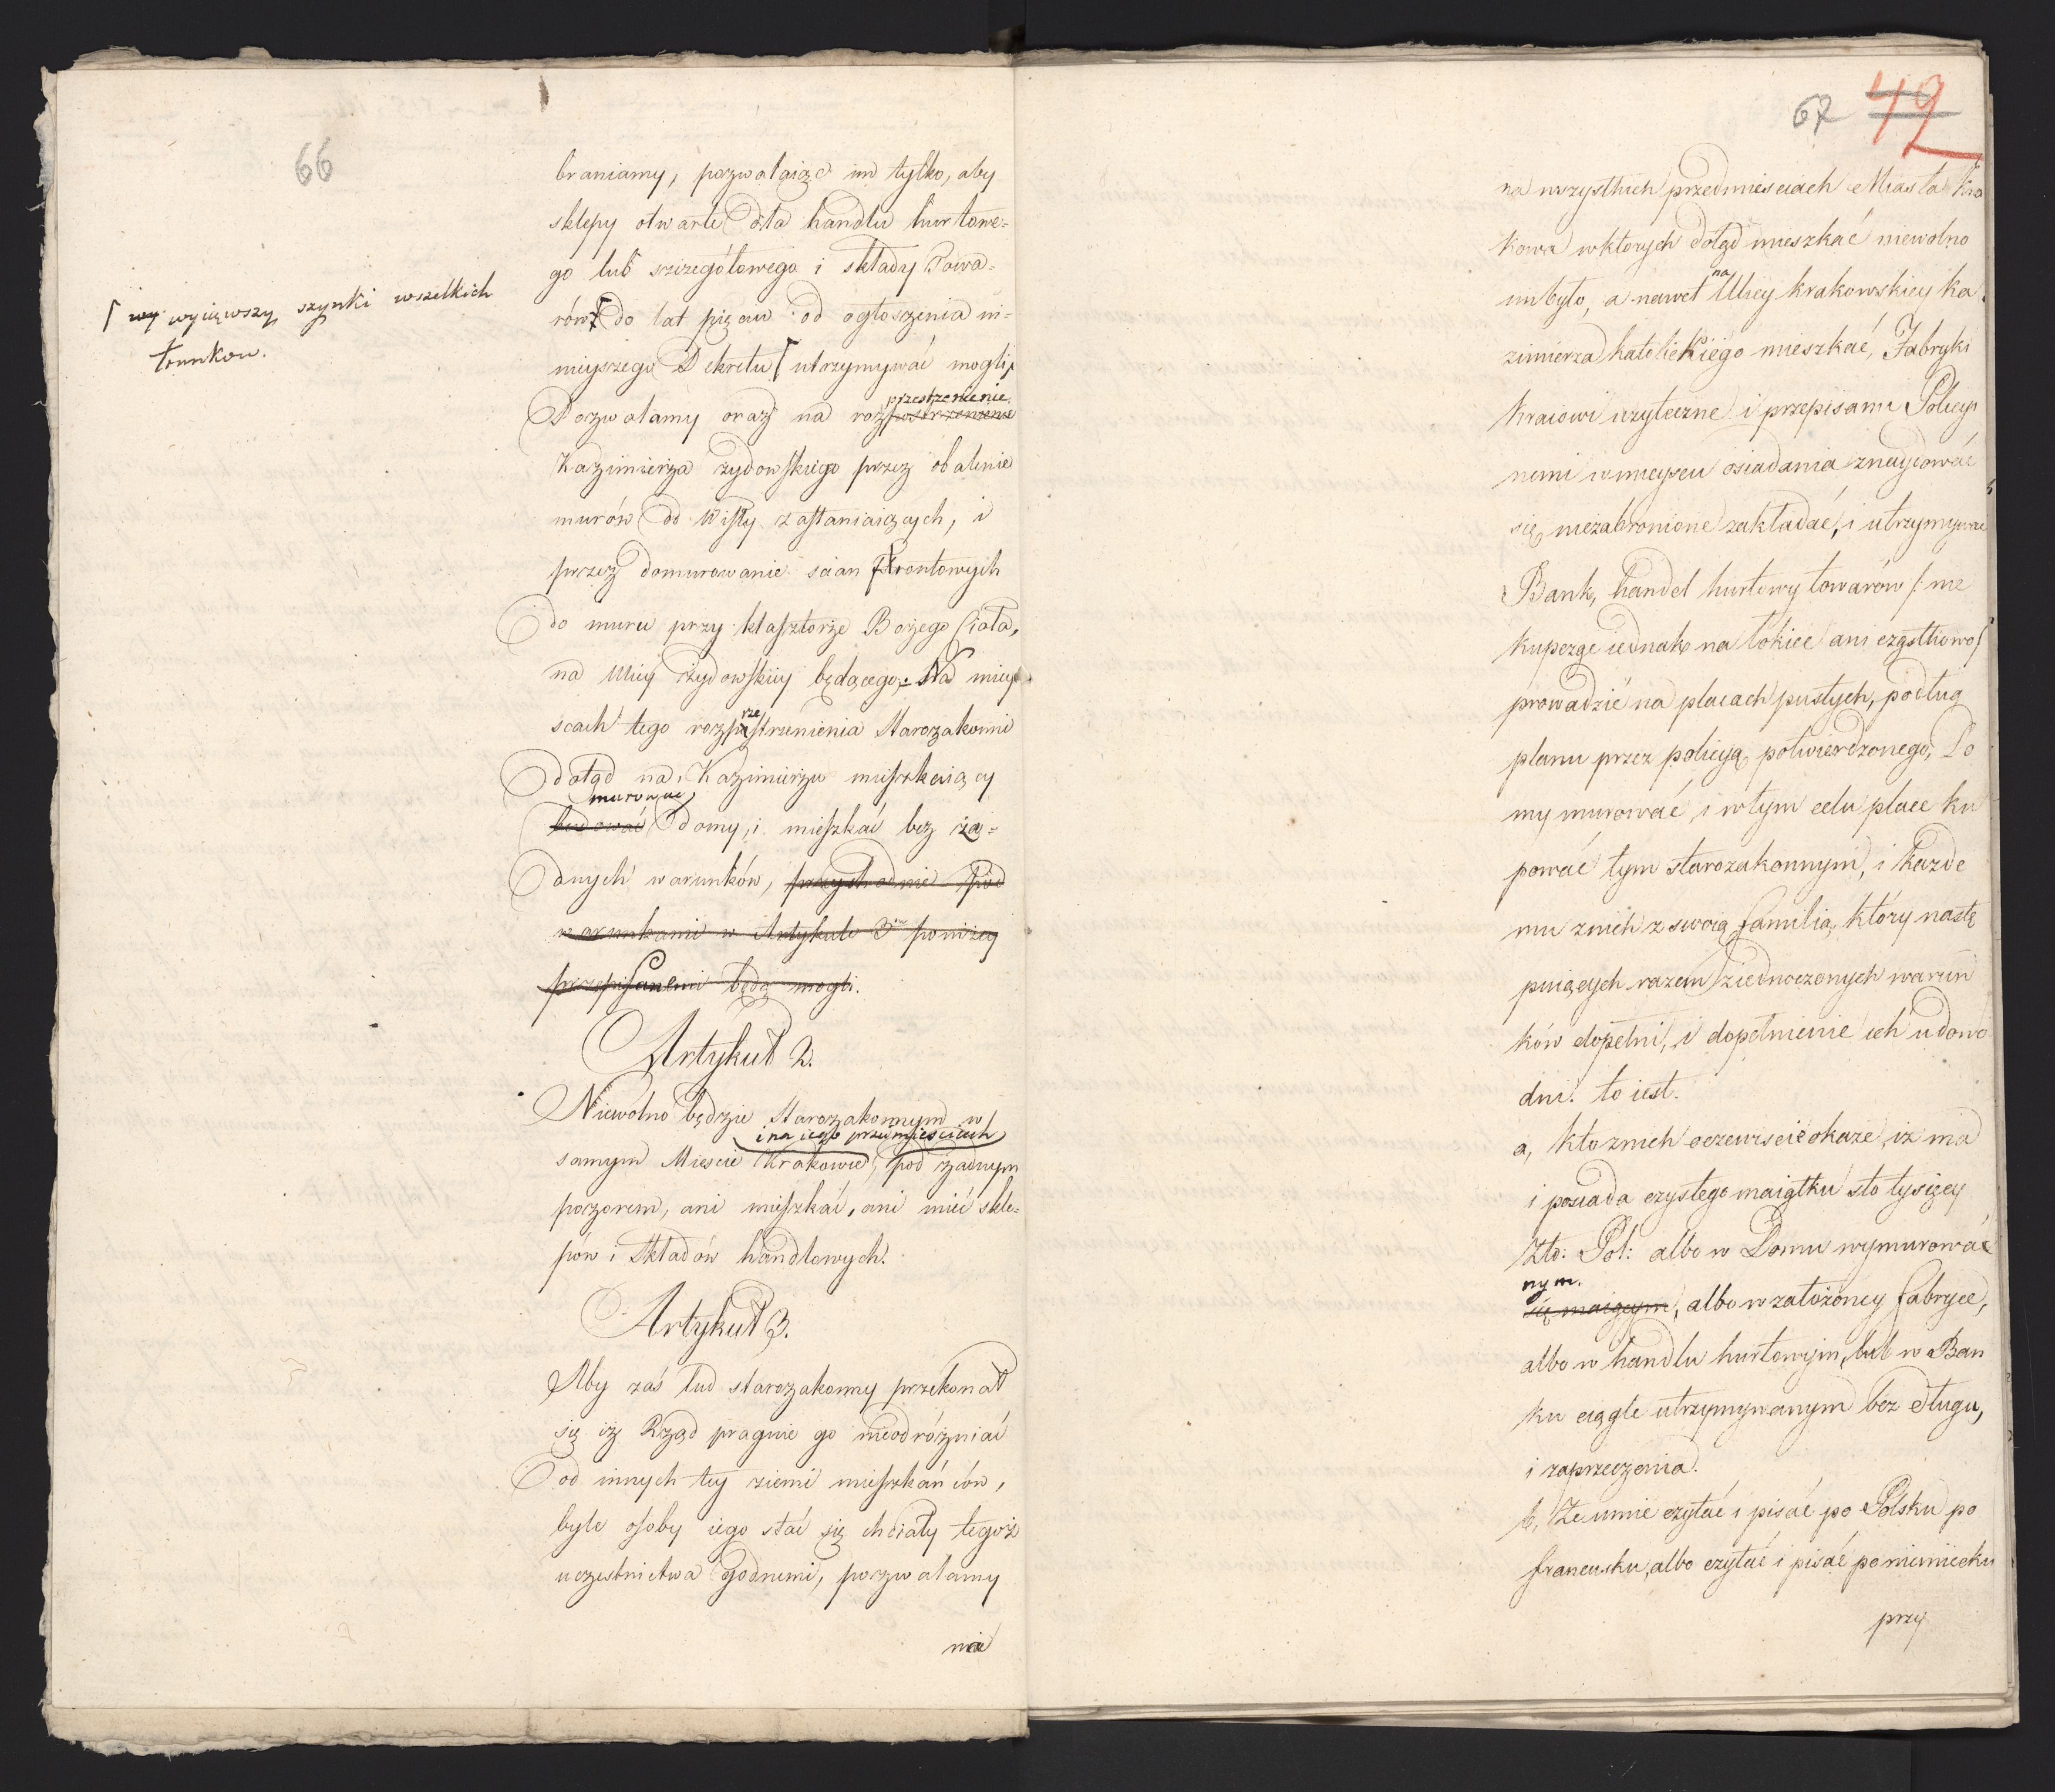 66
braniamy, pozwalaiąc im tylko, aby
sklepy otwarte dla handlu hurtowe-
go lub szczegółowego i składy Towa-
rów do lat pięciu od ogłoszenia ni-
nieyszego Dekretu ſ utrzymywać mogli,
ſ wy wyiąwszy szynki wszelkich
trunkow.
przestrzenienie
Pozwalamy oraz na roz
Kazimierza żydowskiego przez obalenie
murów od Wisły zasłaniaiących, i
przez domurowanie scian frontowych
do muru przy klasztorze Bożego Ciała,
na Ulicy żydowskiey będącego. Na miey
scach tego rozprzestrzenienia Starozakonni
dotąd na Kazimierzu mieszkaiący
murować
budować domy, i mieszkać bez ża-
dnych warunków, przychodnie pod
warunkami w Artykule 3m poniżey
przepisanemi będą mogli.
Artykuł 2.
Niewolno będzie Starozakonnym w
i na iego przedmieściach
samym Mieście Krakowie, pod żadnym
pozorem, ani mieszkać, ani mieć skle-
pów i Składów handlowych.
Artykuł 3.
Aby zaś lud starozakonny przekonał
się iż Rząd pragnie go nieodróżniać
od innych tey ziemi mieszkańców,
byle osoby iego stać się chciały tegoż
uczestnictwa godnemi, pozwalamy
na
67 49
na wszystkich przedmiesciach Miasta Kra
kowa w ktorych dotąd mieszkać niewolno
na
im było, a nawet Ulicy krakowskiey Ka
zimierza katolickiego mieszkać, Fabryki
kraiowi użyteczne i przepisami Policyi
nemi w mieyscu osiadania znaydować
się niezabronione zakładać, i utrzymywać
Bank, handel hurtowy towarów /: nie
kupcząc iednak na łokieć ani cząstkowo/
prowadzić na placach pustych, podług
planu przez policyą potwierdzonego, Do
my murować i w tym celu place ku
pować tym starozakonnym, i każde
mu znich z swoią familią, który nastę
puiących razem ziednoczonych warun
ków dopełni, i dopełnienie ich udowo
dni. to iest.
a, Kto znich oczewiscie okaże, iż ma
i posiada czystego maiątku sto tysięcy
Zło: Pol: albo w Domu wymurowa
nym.
się maiącym, albo w założoney fabryce,
albo w handlu hurtowym, lub w Ban
ku ciągle utrzymywanym bez długu,
i zaprzeczenia.
b, Ze umie czytać i pisać po Polsku po
francusku, albo czytać i pisać po niemiecku
przy